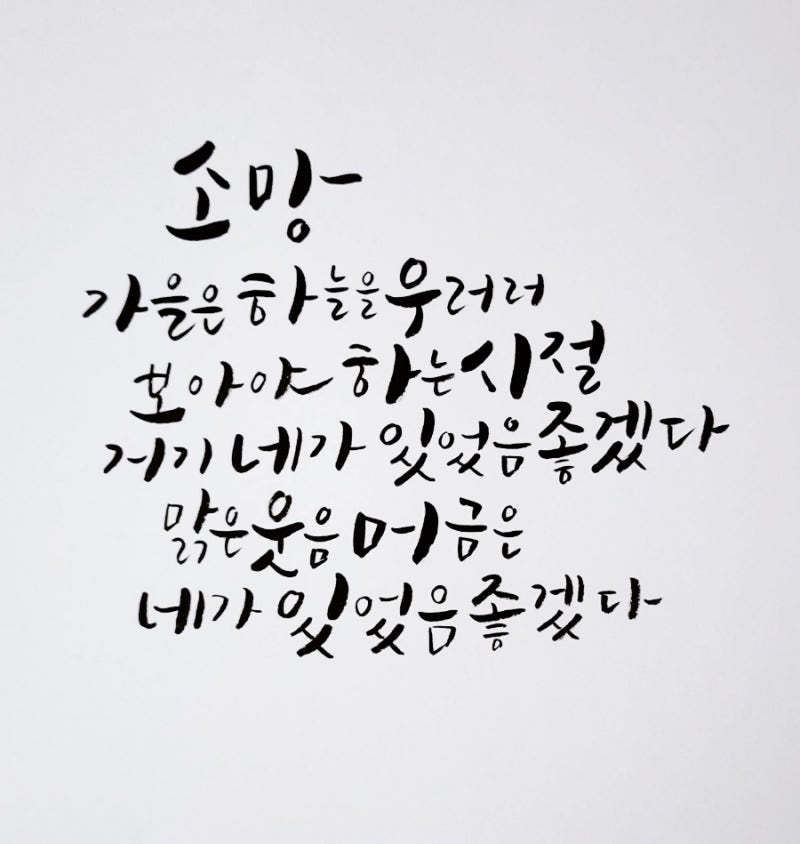 소망
가을은 하늘을 우러러
보아야 하는 시절
거기 네가 있었음 좋겠다
맑은 웃음 머금은
네가 있었음 좋겠다